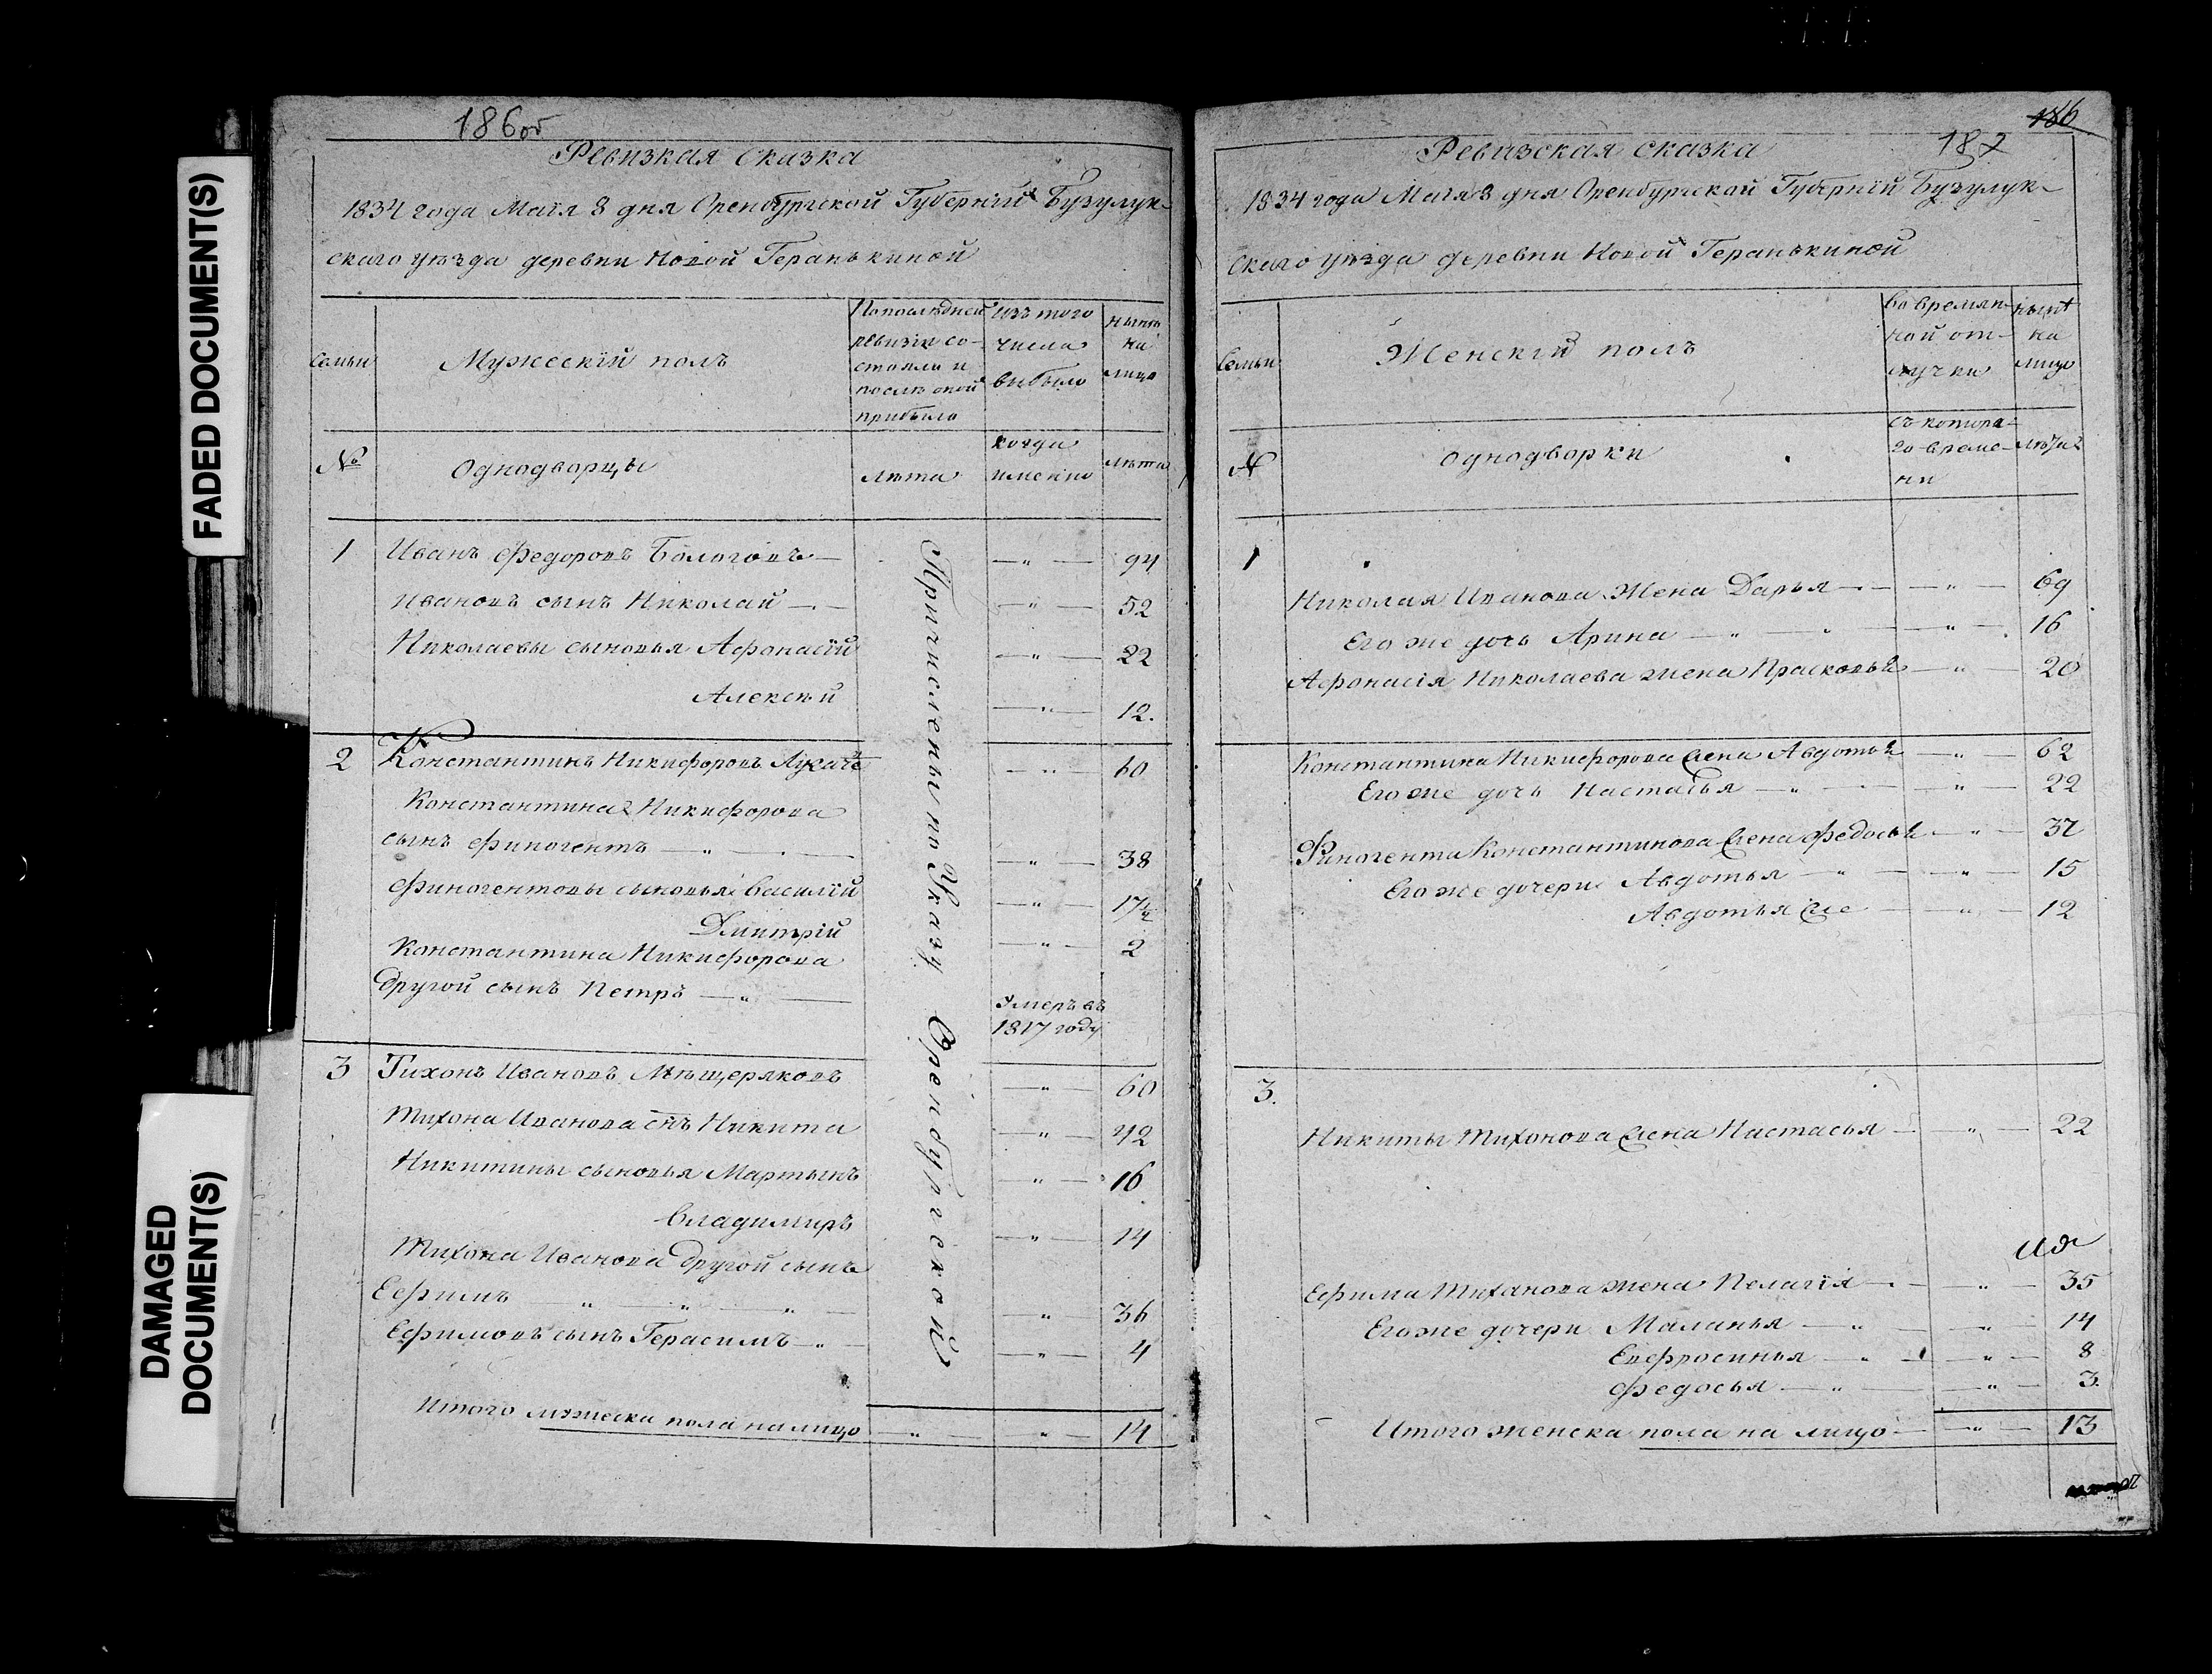 FADED DOCUMENT(S)
DAMAGED
DOCUMENT(S)
186об
Ревизкая сказка
1834 года Маія 8 дня Оренбургской Губерніи Бузулук-
скаго уѣзда деревни Новой Геранькиной
Семьи
Мужескій полъ
По послѣдней
ревизіи со-
стояло и
послѣ оной
прибыло
изъ того
числа
выбыло
нынѣ
на
лицо
№
Однодворцы
лѣта
когда
имянно
лѣта
Причислены по Указу Оренбургской
1 Иванъ Федоровъ Бологовъ — " — 94
Ивановъ сынъ Николай — " — 52
Николаевы сыновья Афонасій — " — 22
Алексѣй — " — 12.
2 Константинъ Никифоровъ — " — 60
Константина Никифорова
сынъ Финогентъ — " — — " — 38
Финогентовы сыновья Василій — " — 17½
Дмитрій — " — 2
Константина Никифорова
другой сынъ Петръ — " — Умеръ въ
1817 году
3 Тихонъ Ивановъ Мѣщеряковъ — " — 60
Тихона Иванова снъ Никита — " — 42
Никитины сыновья Мартынъ — " — 16
Владимиръ — " — 14
Тихона Иванова другой сынъ
Ефимъ — " — " — " — — " — 36
Ефимовъ сынъ Герасимъ — " — — " — 4
Итого мужеска пола на лицо — " — " — 14
186
187
Ревизская сказка
1834 года Маія 8 дня Оренбургской Губерніи Бузулук-
скаго уѣзда деревни Новой Геранькиной
Семьи
Женскій полъ
во времян-
ной от-
лучки
нынѣ
на
лицо
№
Однодворки
съ котора-
го време-
ни
лѣта
1
Николая Иванова жена Дарья — " — 69
Его же дочь Арина — " — " — " — 16
Афонасія Николаева жена Прасковья — " — 20
Константина Никифорова жена Авдотья — " — 62
Его же дочь Настасья — " — — " — 22
Финогента Константинова жена Федосья — " — 37
Его же дочери Авдотья — " — — " — 15
Авдотья же — " — 12
3.
Никиты Тихонова жена Настасья — " — 22
Ефима Тихонова жена Пелагія — " — 35
Его же дочери Маланья — " — " — 14
Евфросинья — " — " — 8
Федосья — " — " — 3.
Итого женска пола на лицо — " — 13